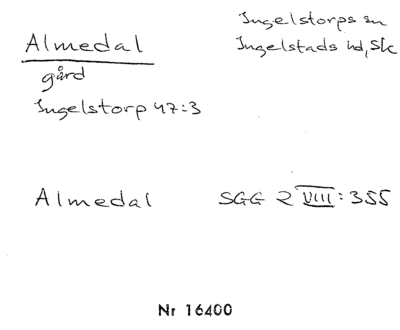 Almedal
gård
Ingelstorp 47:3
Ingelstorps sn
Ingelstads hd, Sk
Almedal SGG 2 VIII: 355
Nr 16400